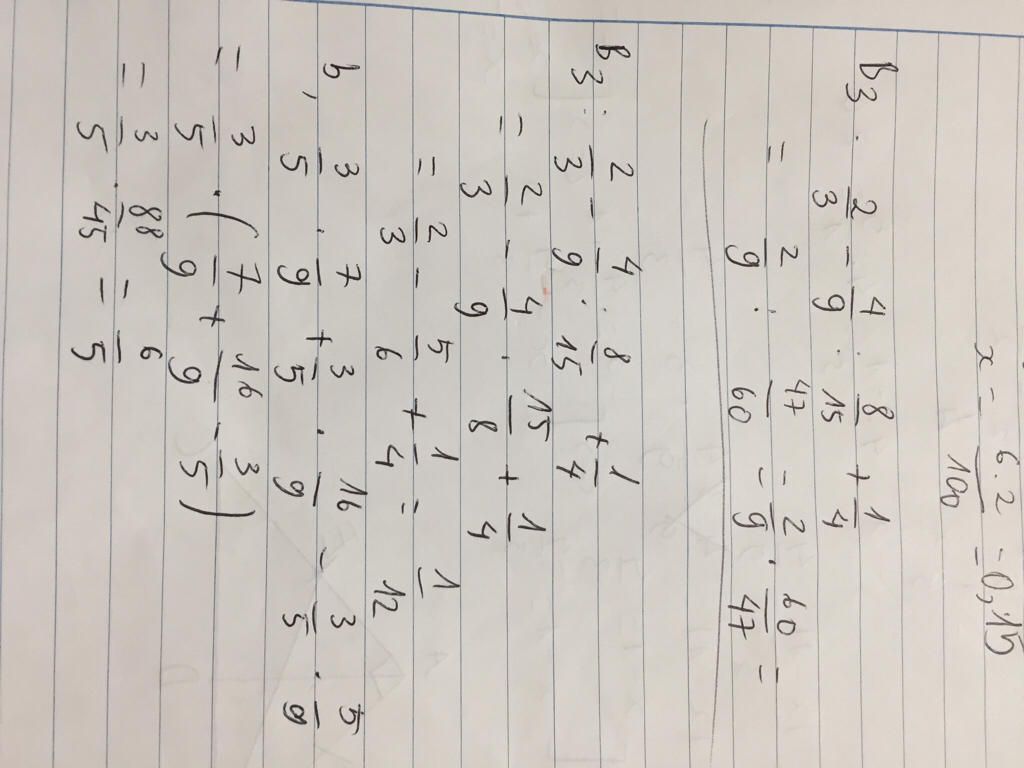 x = 6.2/100 = 0,15
B3: 2/3 - 4/9 : 8/15 + 1/4
= 2/9 : 47/60 = 2/9 . 60/47 =
B3: 2/3 - 4/9 : 8/15 + 1/4
= 2/3 - 4/9 . 15/8 + 1/4
= 2/3 - 5/6 + 1/4 = 1/12
b, 3/5 . 7/9 + 3/5 . 16/9 - 3/5 . 5/9
= 3/5 . (7/9 + 16/9 - 3/5)
= 3/5 . 88/45 = 6/5